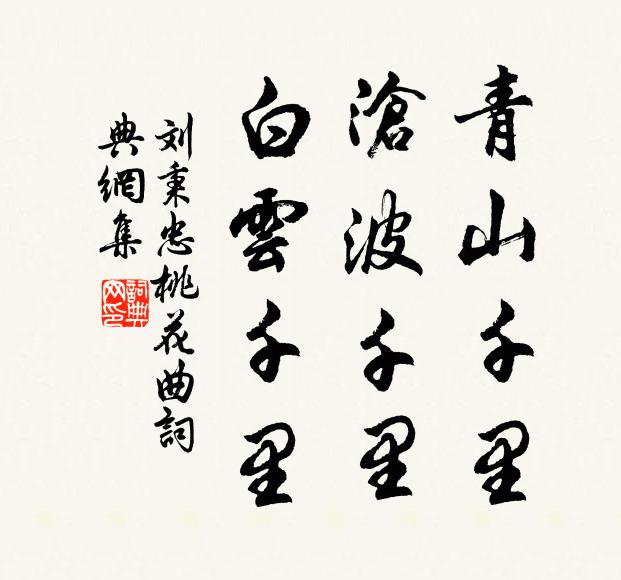 青山千里
滄波千里
白雲千里
刘秉忠桃花曲詞
典網集
詞典
网印